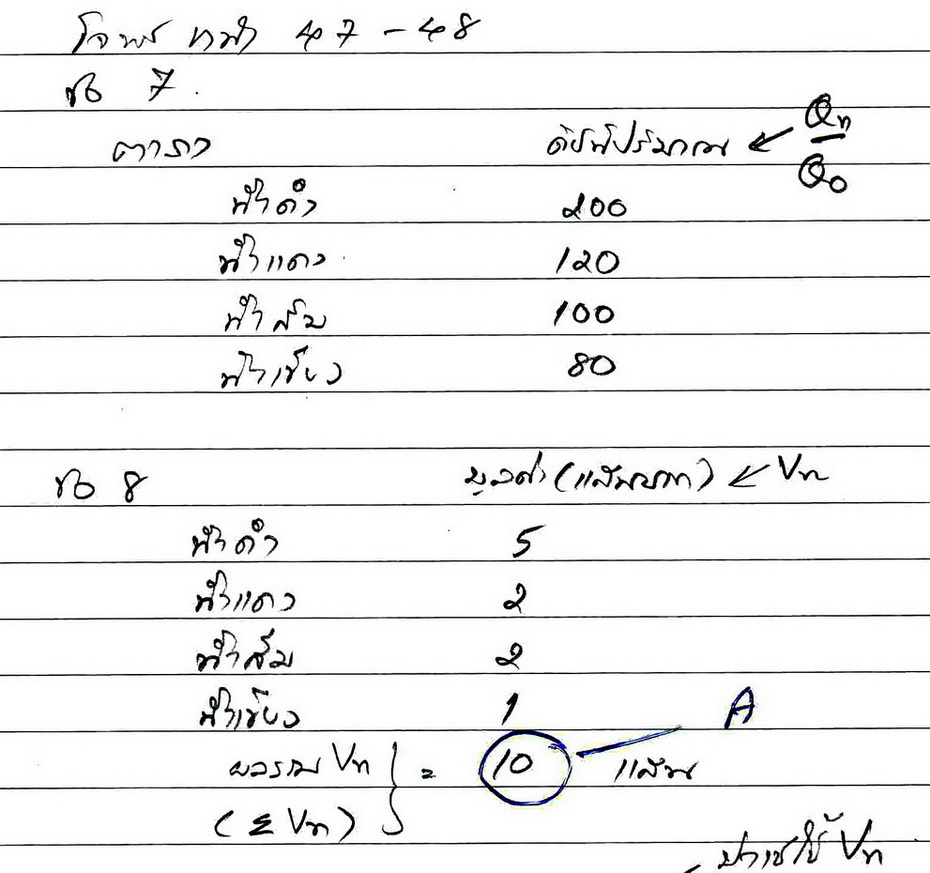 โจทย์ หน้า 47 - 48
ข้อ 7.
ตาราง ดัชนีปริมาณ ← Qn/Qo
น้ำดำ 200
น้ำแดง 120
น้ำส้ม 100
น้ำเขียว 80
ข้อ 8 มูลค่า (แสนบาท) ← Vn
น้ำดำ 5
น้ำแดง 2
น้ำส้ม 2
น้ำเขียว 1 A
ผลรวม Vn } = 10 แสน
(Σ Vn)
Vn